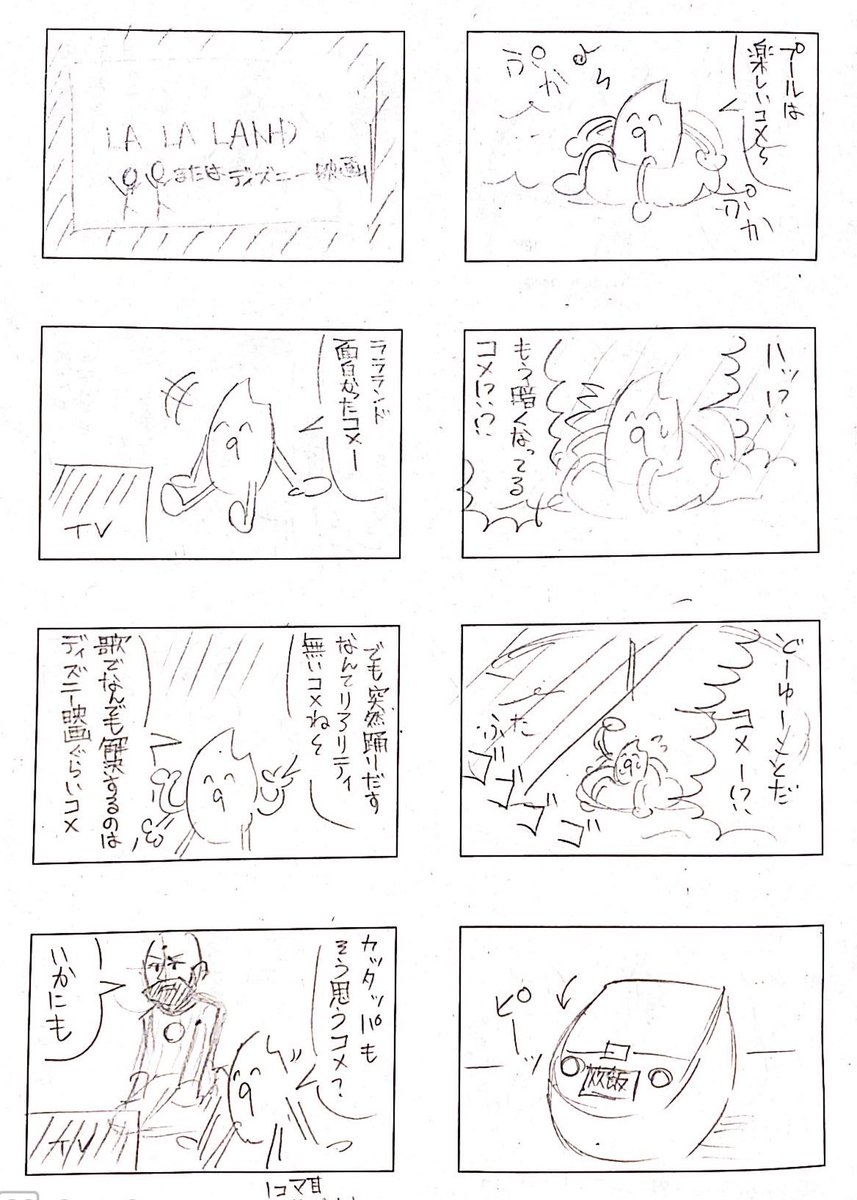 プールは
楽しいコメ〜
ぷか
ぷか
ハッ!?
もう暗くなってる
コメ!?!?
どーゆーことだ
コメー!?
ふた
ゴゴゴゴ
ピーッ
炊飯
LA LA LAND
またはディズニー映画
ララランド
面白かったコメー
TV
でも突然踊りだす
なんてリアリティ
無いコメね〜
歌でなんでも解決するのは
ディズニー映画ぐらいコメ
カッタッパも
そう思うコメ?
いかにも
TV
1コマ目